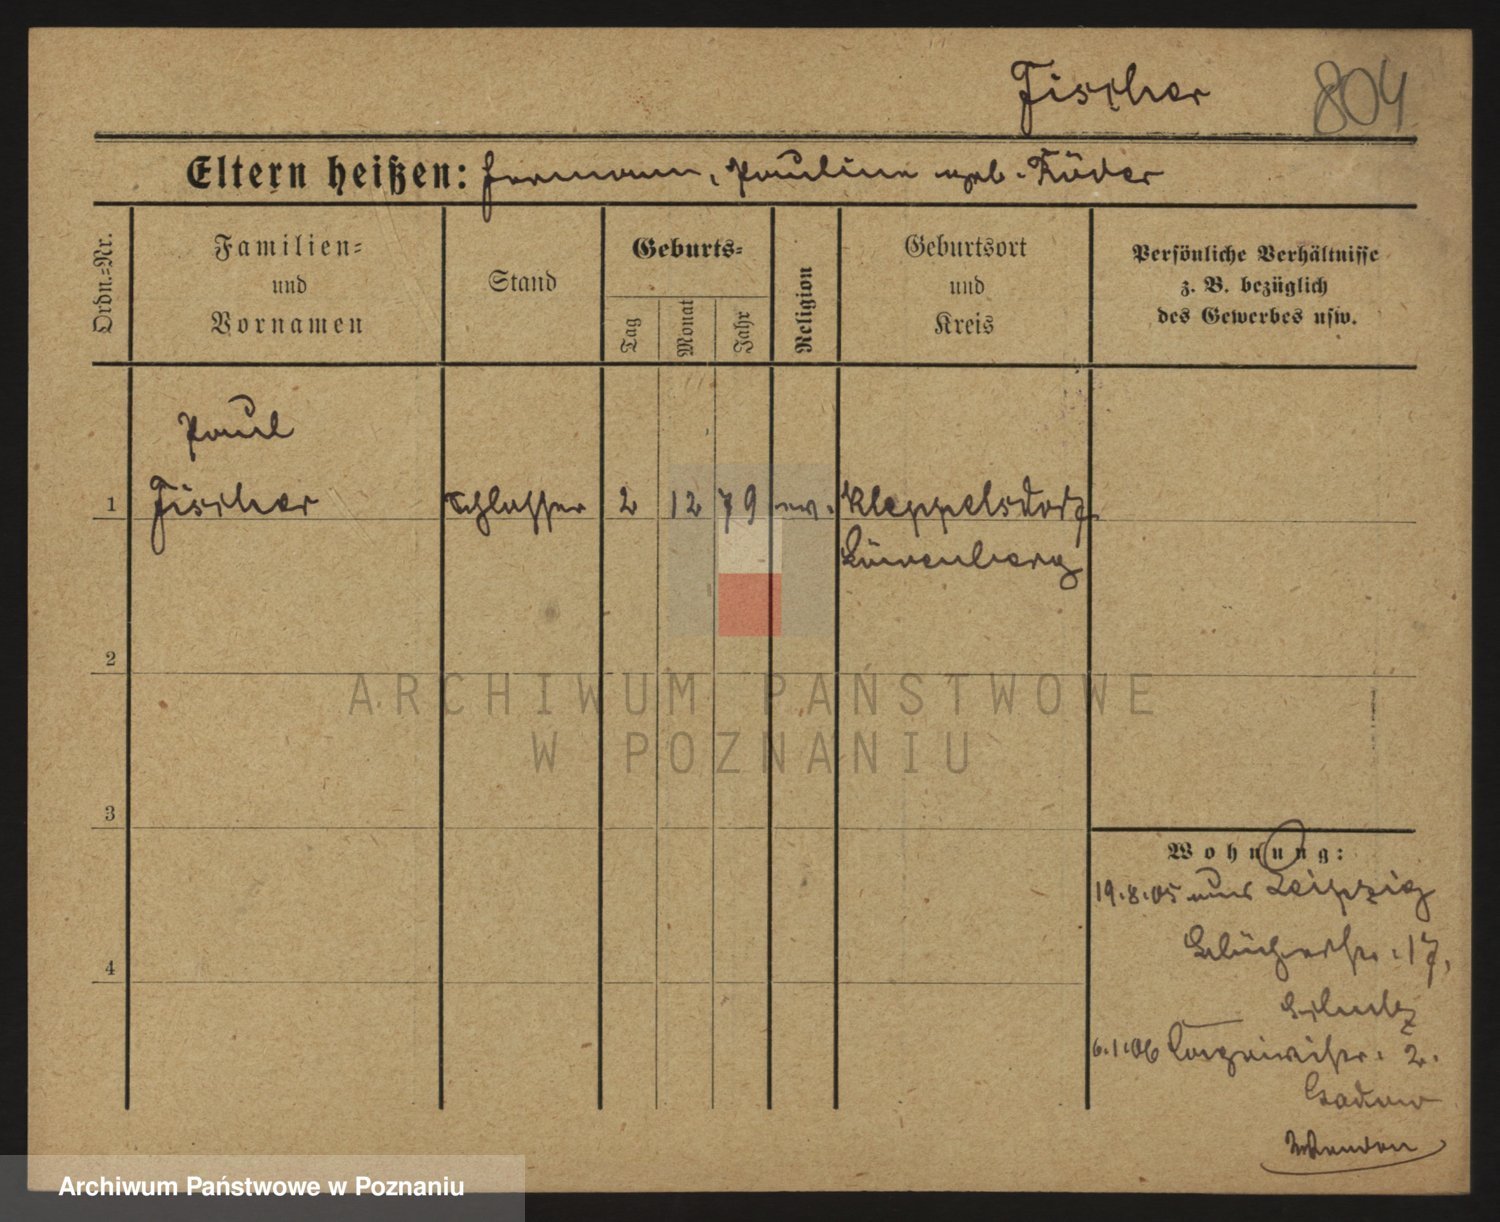 Fischer 804
Eltern heißen: Hermann, Pauline geb. Röder
Ordn.=Nr.
Familien=
und
Vornamen
Stand
Geburts=
Tag
Monat
Jahr
Religion
Geburtsort
und
Kreis
Persönliche Verhältnisse
z. B. bezüglich
des Gewerbes usw.
Paul
1 Fischer Schlosser 2 12 79 ev. Kleppelsdorf
Löwenberg
2
ARCHIWUM PAŃSTWOWE
W POZNANIU
3
Wohnung:
19.8.05 aus Leipzig
Blücherstr. 17,
4
Schulz
6.1.06 2.
Archiwum Państwowe w Poznaniu